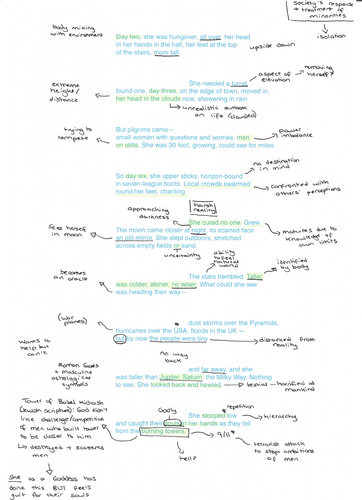 society's response + treatment of minorities
isolation
body mixing with environment
Day two, she was hungover, all over, her head
in her hands in the hall, her feet at the top
of the stairs, more tall.
upside down
She needed a turret,
aspect of elevation
removing herself?
extreme height/distance
found one, day three, on the edge of town, moved in,
her head in the clouds now, showering in rain.
unrealistic outlook on life (clouded)
trying to compete
But pilgrims came –
small women with questions and worries, men
on stilts. She was 30 foot, growing, could see for miles.
power imbalance
no destination in mind
So day six, she upped sticks, horizon-bound
in seven-league boots. Local crowds swarmed
round her feet, chanting
confronted with others' perceptions
approaching darkness
harsh reality
She cured no one. Grew.
sees herself in moon
The moon came closer at night, its scarred face
an old mirror. She slept outdoors, stretched
across empty fields or sand.
matures due to knowledge of own limits
uncertainty
ability to feel natural world
becomes an oracle
The stars trembled. Taller
was colder, aloner, no wiser. What could she see
was heading their way –
identified by body
(war planes)
dust storms over the Pyramids,
hurricanes over the USA, floods in the UK –
but by now the people were tiny
distanced from reality
wants to help but can't
no way back
and far away, and she
was taller than Jupiter, Saturn, the Milky Way. Nothing
to see. She looked back and howled.
behind - horrified at mankind
Roman Gods + masculine astrological symbols
Tower of Babel Midrash (Jewish Scripture): God didn't like challenge/competition of men who built tower to be closer to him
→ destroyed + scatters men
Godly
repetition
She stooped low
hierarchy
and caught their souls in her hands as they fell
from the burning towers.
9/11
terrorist attack to stop ambitions of men
hell?
She as a Goddess has done this BUT feels guilt for their souls